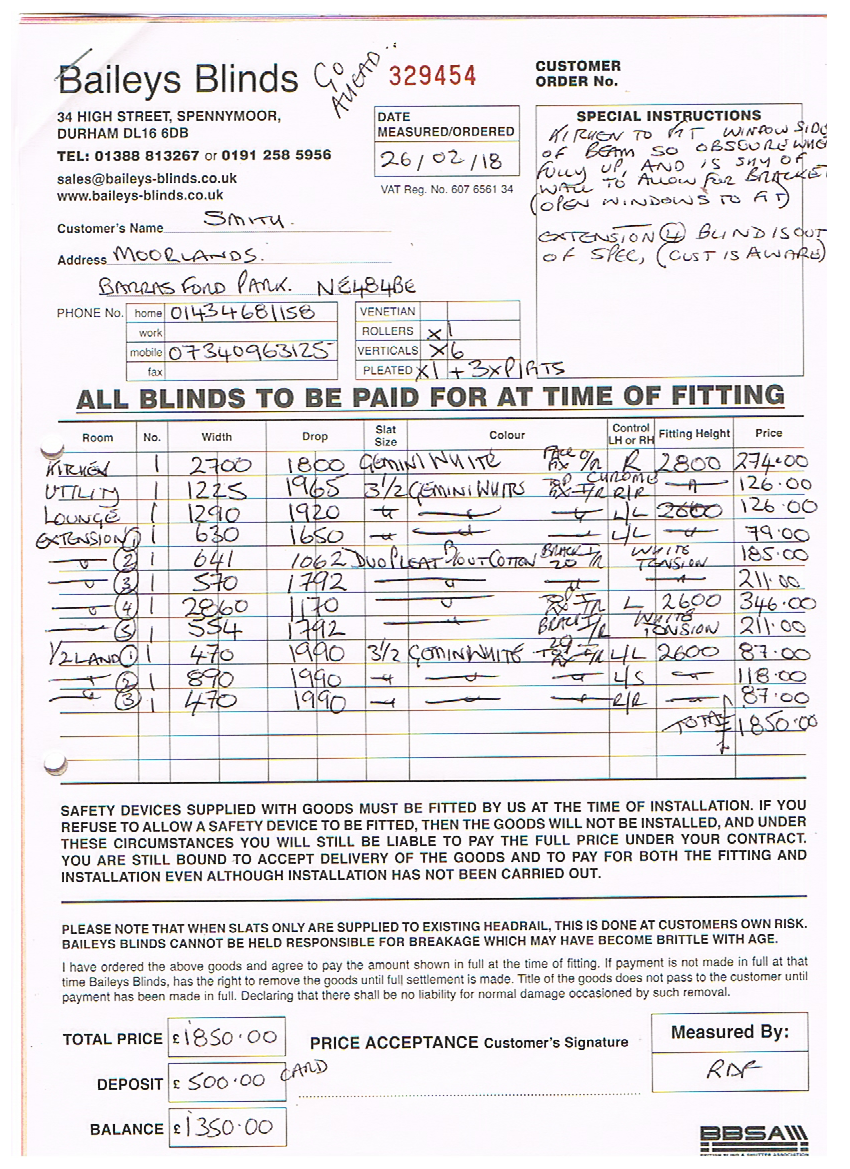 Baileys Blinds
GO AHEAD..
329454
CUSTOMER
ORDER No.
34 HIGH STREET, SPENNYMOOR,
DURHAM DL16 6DB
TEL: 01388 813267 or 0191 258 5956
sales@baileys-blinds.co.uk
www.baileys-blinds.co.uk
DATE
MEASURED/ORDERED
26/02/18
VAT Reg. No. 607 6561 34
SPECIAL INSTRUCTIONS
KITCHEN TO FIT WINDOW SIDE
OF BEAM SO OBSCURE WHEN
FULLY UP, AND IS SHY OF
WALL TO ALLOW FOR BRACKET
(OPEN WINDOWS TO FIT)
EXTENSION 4 BLIND IS OUT
OF SPEC, (CUST IS AWARE)
Customer's Name SMITH.
Address MOORLANDS.
BARRASFORD PARK. NE48 4BE
PHONE No. home 01434681158
work
mobile 07340963125
fax
VENETIAN
ROLLERS x1
VERTICALS x6
PLEATED x1 + 3xP/RTS
ALL BLINDS TO BE PAID FOR AT TIME OF FITTING
Room No. Width Drop Slat Size Colour Control LH or RH Fitting Height Price
KITCHEN 1 2700 1800 GEMINI WHITE FACE FIX O/R R 2800 274.00
UTILITY 1 1225 1965 3 1/2 GEMINI WHITE TOP FIX I/R CHROME R/R 126.00
LOUNGE 1 1290 1920 L/L 2600 126.00
EXTENSION 1 1 630 1650 L/L 79.00
2 1 641 1062 DUO PLEAT B/OUT COTTON BRACK 20 I/R WHITE TENSION 185.00
3 1 570 1792 211.00
4 1 2860 1170 TOP FIX I/R L 2600 346.00
5 1 554 1792 BRACK 20 I/R WHITE TENSION 211.00
1/2 LAND 1 1 470 1990 3 1/2 GEMINI WHITE TOP FIX I/R L/L 2600 87.00
2 1 890 1990 L/S 118.00
3 1 470 1990 R/R 87.00
TOTAL £1850.00
SAFETY DEVICES SUPPLIED WITH GOODS MUST BE FITTED BY US AT THE TIME OF INSTALLATION. IF YOU
REFUSE TO ALLOW A SAFETY DEVICE TO BE FITTED, THEN THE GOODS WILL NOT BE INSTALLED, AND UNDER
THESE CIRCUMSTANCES YOU WILL STILL BE LIABLE TO PAY THE FULL PRICE UNDER YOUR CONTRACT.
YOU ARE STILL BOUND TO ACCEPT DELIVERY OF THE GOODS AND TO PAY FOR BOTH THE FITTING AND
INSTALLATION EVEN ALTHOUGH INSTALLATION HAS NOT BEEN CARRIED OUT.
PLEASE NOTE THAT WHEN SLATS ONLY ARE SUPPLIED TO EXISTING HEADRAIL, THIS IS DONE AT CUSTOMERS OWN RISK.
BAILEYS BLINDS CANNOT BE HELD RESPONSIBLE FOR BREAKAGE WHICH MAY HAVE BECOME BRITTLE WITH AGE.
I have ordered the above goods and agree to pay the amount shown in full at the time of fitting. If payment is not made in full at that
time Baileys Blinds, has the right to remove the goods until full settlement is made. Title of the goods does not pass to the customer until
payment has been made in full. Declaring that there shall be no liability for normal damage occasioned by such removal.
TOTAL PRICE £ 1850.00
PRICE ACCEPTANCE Customer's Signature
Measured By:
RDF
DEPOSIT £ 500.00 CARD
BALANCE £ 1350.00
BBSA